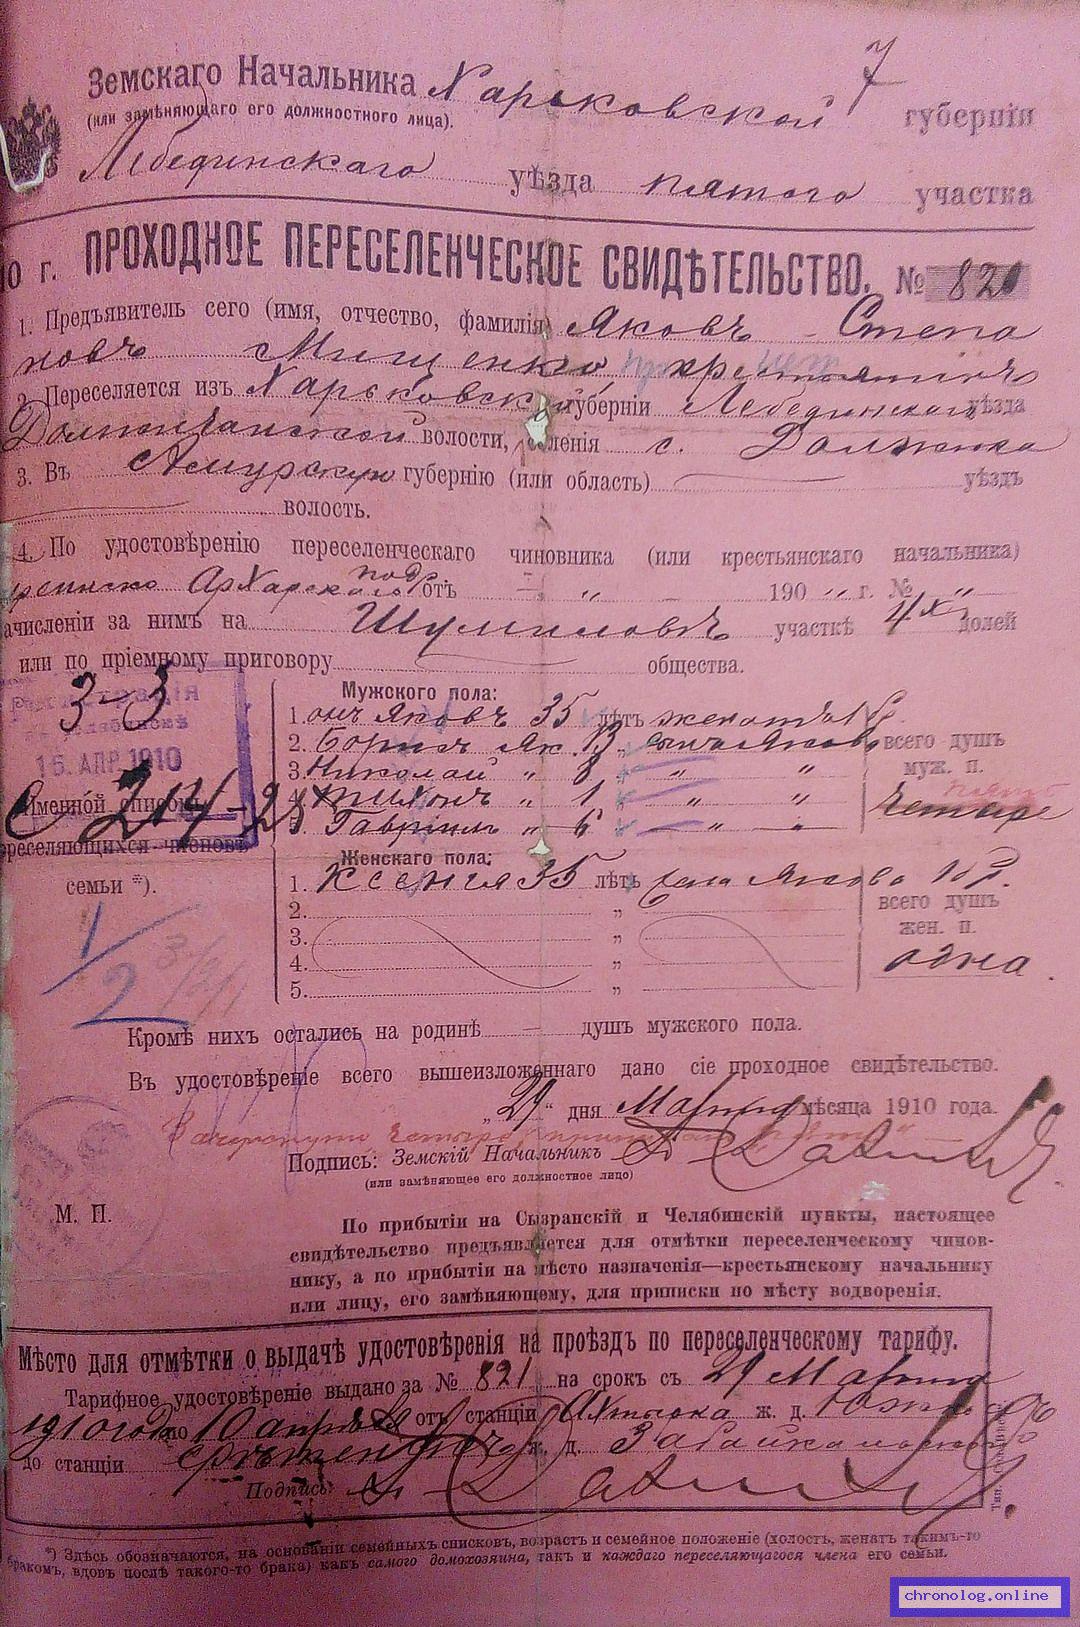 Земскаго Начальника Харьковской 7 губерніи
(или заменяющаго его должностного лица).
Лебединскаго уѣзда пятого участка
10 г. ПРОХОДНОЕ ПЕРЕСЕЛЕНЧЕСКОЕ СВИДѢТЕЛЬСТВО. № 821
1. Предъявитель сего (имя, отчество, фамилія) Яковъ Степа
новъ Мищенко, крестьянинъ
2. Переселяется изъ Харьковской губерніи Лебединскаго уѣзда
волости, селенія с. Должика
3. Въ Амурскую губернію (или область) уѣздъ
волость.
4. По удостовѣренію переселенческаго чиновника (или крестьянскаго начальника)
Архарскаго подр. отъ — „ — 190 „ г. № „
зачисленіи за нимъ на Шумиловъ участкѣ 4х долей
или по пріемному приговору общества.
3-3
15 АПР 1910
С 214-28
Именной списокъ
переселяющихся членовъ
семьи *).
Мужского пола:
1. онъ Яковъ 35 лѣтъ женатъ 1 б.
2. Борисъ Як. 13 „ сынъ Якова
3. Николай „ 8 „ „ „
4. Тихонъ „ 1 „ „
5 Гавріилъ „ 6 „
всего душъ
муж. п.
пять
четыре
Женскаго пола:
1. Ксенія 35 лѣтъ жена Якова 1 бр.
2. „
3. „
4. „
5. „
всего душъ
жен. п.
одна.
1/2
Кромѣ нихъ остались на родинѣ — душъ мужского пола.
Въ удостовѣреніе всего вышеизложеннаго дано сіе проходное свидѣтельство.
„29“ дня Марта мѣсяца 1910 года.
Зачеркнуто четыре
Подпись: Земскій Начальникъ
(или замѣняющее его должностное лицо)
М. П.
По прибытіи на Сызранскій и Челябинскій пункты, настоящее
свидѣтельство предъявляется для отмѣтки переселенческому чинов-
нику, а по прибытіи на мѣсто назначенія—крестьянскому начальнику
или лицу, его замѣняющему, для приписки по мѣсту водворенія.
Мѣсто для отмѣтки о выдачѣ удостовѣренія на проѣздъ по переселенческому тарифу.
Тарифное удостовѣреніе выдано за № 821 на срокъ съ 29 Марта
1910 года по 10 апрѣля отъ станціи Ахтырка ж. д. Южной
до станціи Срѣтенскъ ж. д. Забайкальской
Подпись:
*) Здѣсь обозначаются, на основаніи семейныхъ списковъ, возрастъ и семейное положеніе (холостъ, женатъ такимъ-то
бракомъ, вдовъ послѣ такого-то брака) какъ самого домохозяина, такъ и каждаго переселяющагося члена его семьи.
chronolog.online